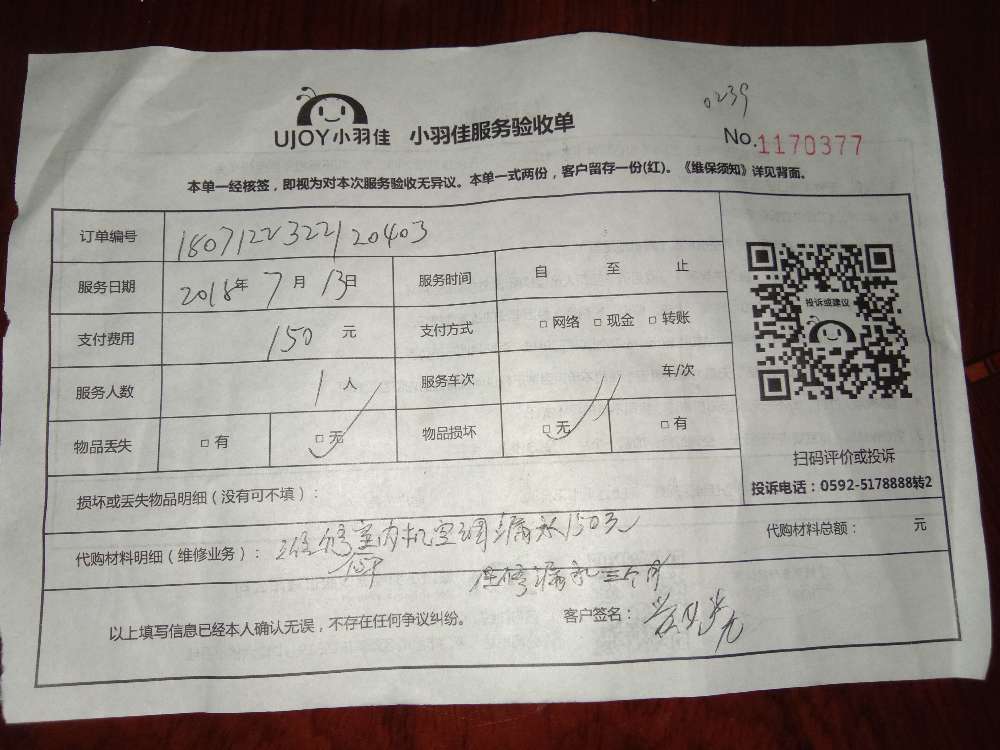 0239
UJOY小羽佳 小羽佳服务验收单
No.1170377
本单一经核签，即视为对本次服务验收无异议。本单一式两份，客户留存一份(红)。《维保须知》详见背面。
订单编号 180712232220403
服务日期 2018年 7月 13日 服务时间 自 至 止
支付费用 150 元 支付方式 □网络 □现金 □转账
服务人数 1 人 服务车次 车/次
物品丢失 □有 □无 物品损坏 □无 □有
投诉或建议
扫码评价或投诉
投诉电话：0592-5178888转2
损坏或丢失物品明细（没有可不填）：
代购材料明细（维修业务）： 维修室内机空调漏水150元
代购材料总额： 元
保修漏水三个月
以上填写信息已经本人确认无误，不存在任何争议纠纷。 客户签名：